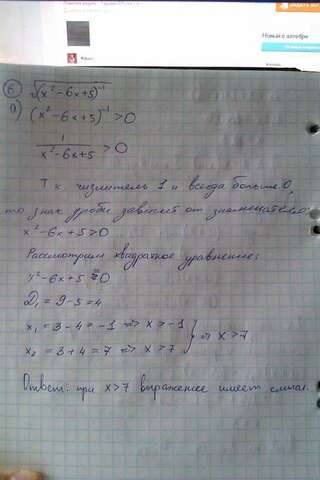 Новый с алгебри
6) √(x²-6x+5)⁻¹
g) (x²-6x+5)⁻¹ > 0
1/(x²-6x+5) > 0
Тк числитель 1 и всегда больше 0,
то знак дроби зависит от знаменателя:
x²-6x+5>0
Рассмотрим квадратное уравнение:
x²-6x+5=0
D₁ = 9-5=4
x₁ = 3-4=-1 ⇒ x>-1
x₂ = 3+4=7 ⇒ x>7 } ⇒ x>7
Ответ: при x>7 выражение имеет смысл.